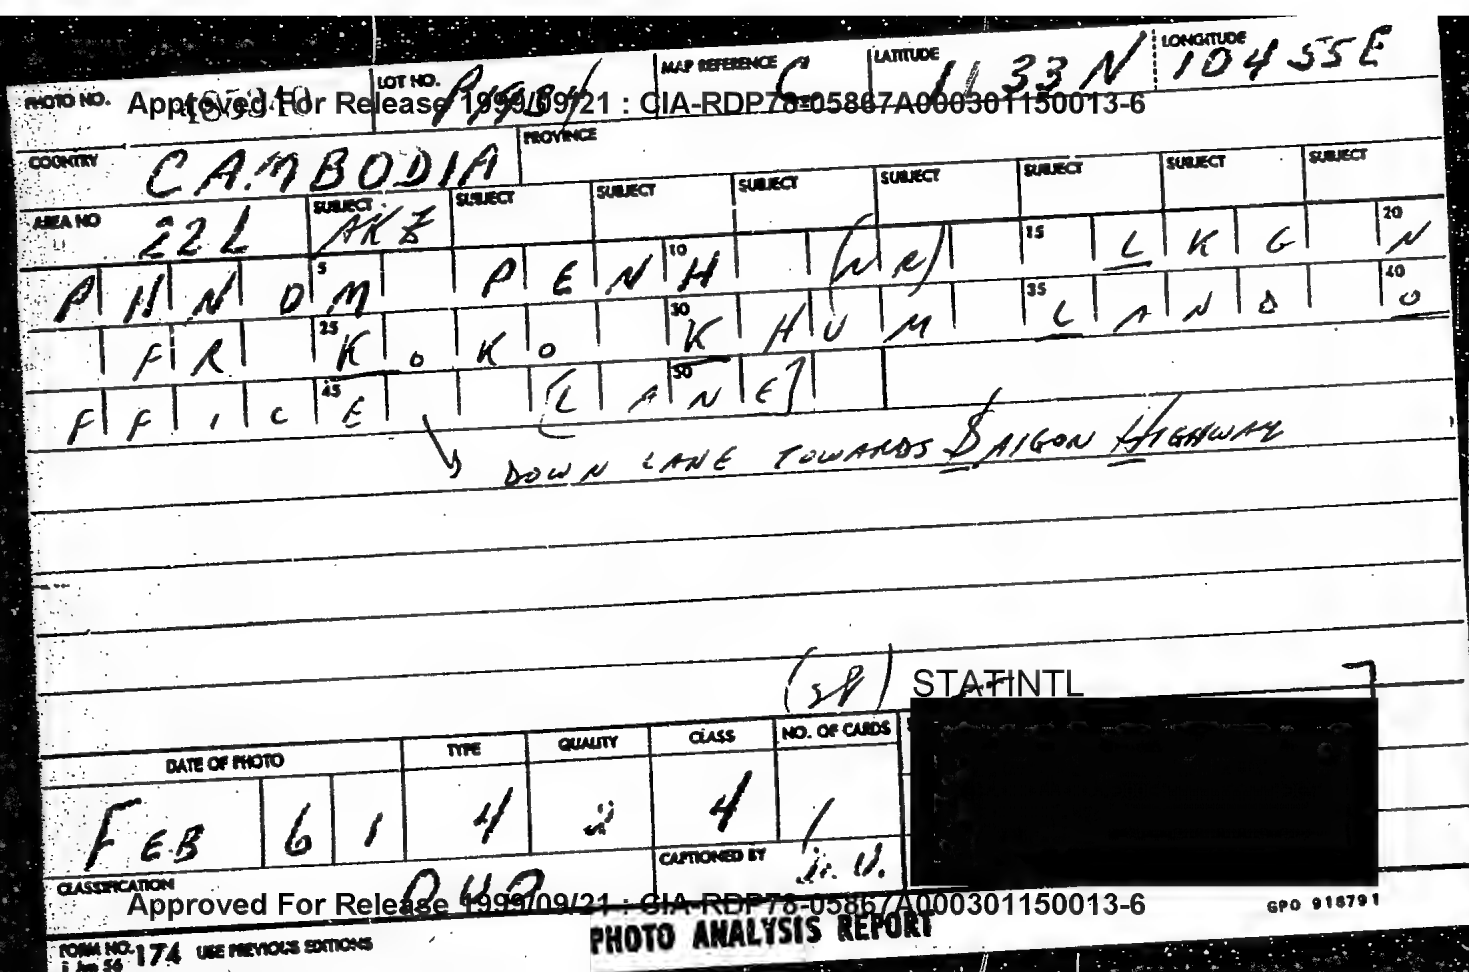 PHOTO NO. 485340 LOT NO. MAP REFERENCE C LATITUDE 11 33 N LONGITUDE 104 55 E
Approved For Release 1999/09/21 : CIA-RDP78-05867A000301150013-6
COUNTRY CAMBODIA PROVINCE
AREA NO 22L SUBJECT AKZ SUBJECT SUBJECT SUBJECT SUBJECT SUBJECT SUBJECT SUBJECT
PHNOM PENH (NR) LKG N
5 10 15 20
FR K.O. KHUM LAND O
25 30 35 40
FFICE [LANE]
45 50
DOWN LANE TOWARDS SAIGON HIGHWAY
(SP) STATINTL
DATE OF PHOTO TYPE QUALITY CLASS NO. OF CARDS
FEB 61 4 2 4 1
CAPTIONED BY
CLASSIFICATION OUO
Approved For Release 1999/09/21 : CIA-RDP78-05867A000301150013-6
GPO 918791
PHOTO ANALYSIS REPORT
FORM NO. 174 USE PREVIOUS EDITIONS
1 Jan 56